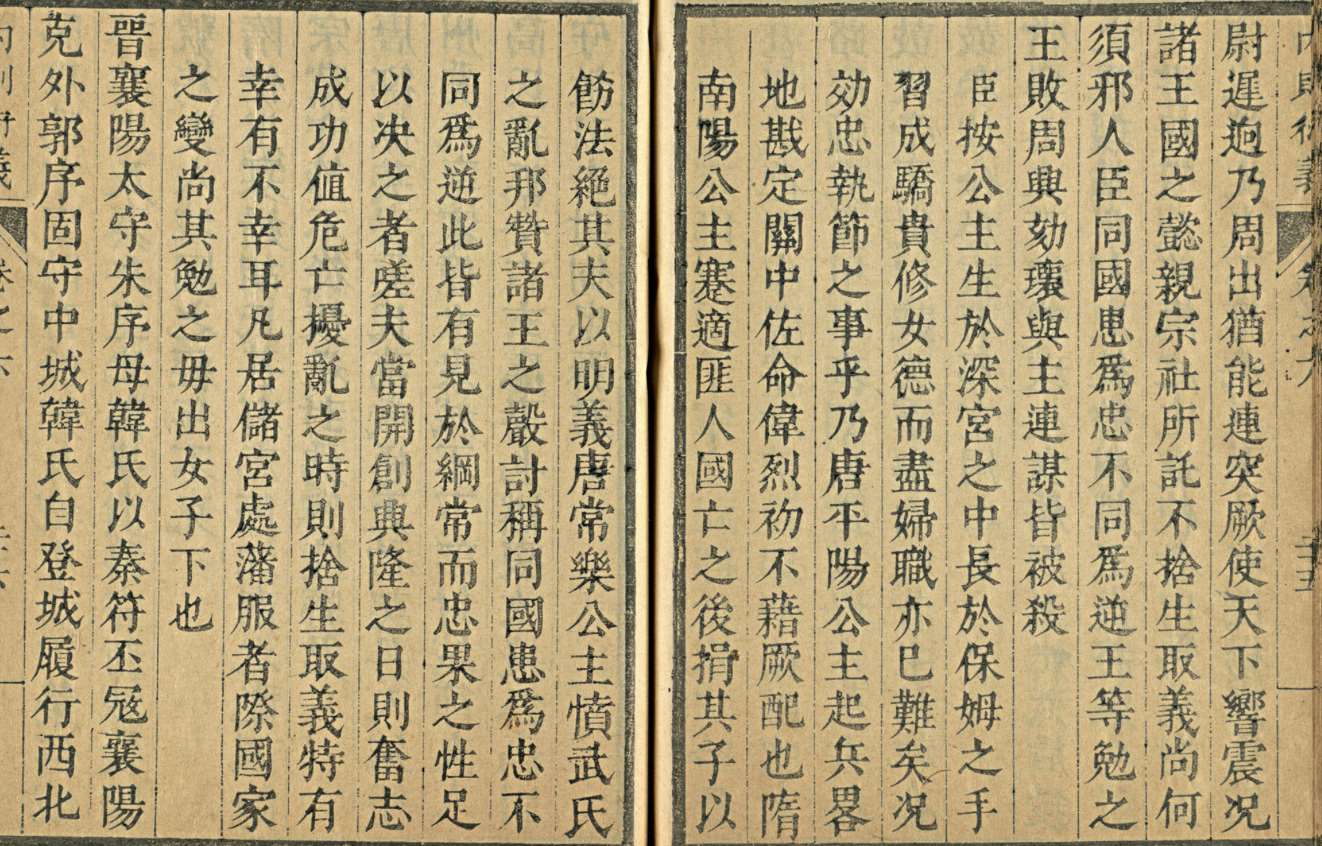 尉遲迥乃周出猶能連突厥使天下響震况
諸王國之懿親宗社所託不捨生取義尚何
須邪人臣同國患爲忠不同爲逆王等勉之
王敗周興劾瓌與主連謀皆被殺
臣按公主生於深宮之中長於保姆之手
習成驕貴修女德而盡婦職亦已難矣况
効忠執節之事乎乃唐平陽公主起兵畧
地戡定關中佐命偉烈初不藉厥配也隋
南陽公主蹇適匪人國亡之後捐其子以
飭法絕其夫以明義唐常樂公主憤武氏
之亂邦贊諸王之嚴討稱同國患爲忠不
同爲逆此皆有見於綱常而忠果之性足
以决之者嗟夫當開創興隆之日則奮志
成功值危亡擾亂之時則捨生取義特有
幸有不幸耳凡居儲宮處藩服者際國家
之變尚其勉之毋出女子下也
晉襄陽太守朱序母韓氏以秦符丕冦襄陽
克外郭序固守中城韓氏自登城履行西北